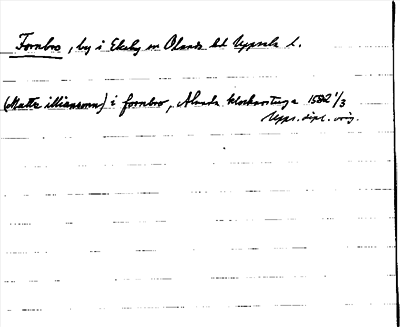 Fornbro, by i Ekeby sn Olands hd Uppsala l.
(Mattz illiansonn) i fornbro, Alunda klockarstuga 1582 1/3
Upps. dipl. orig.